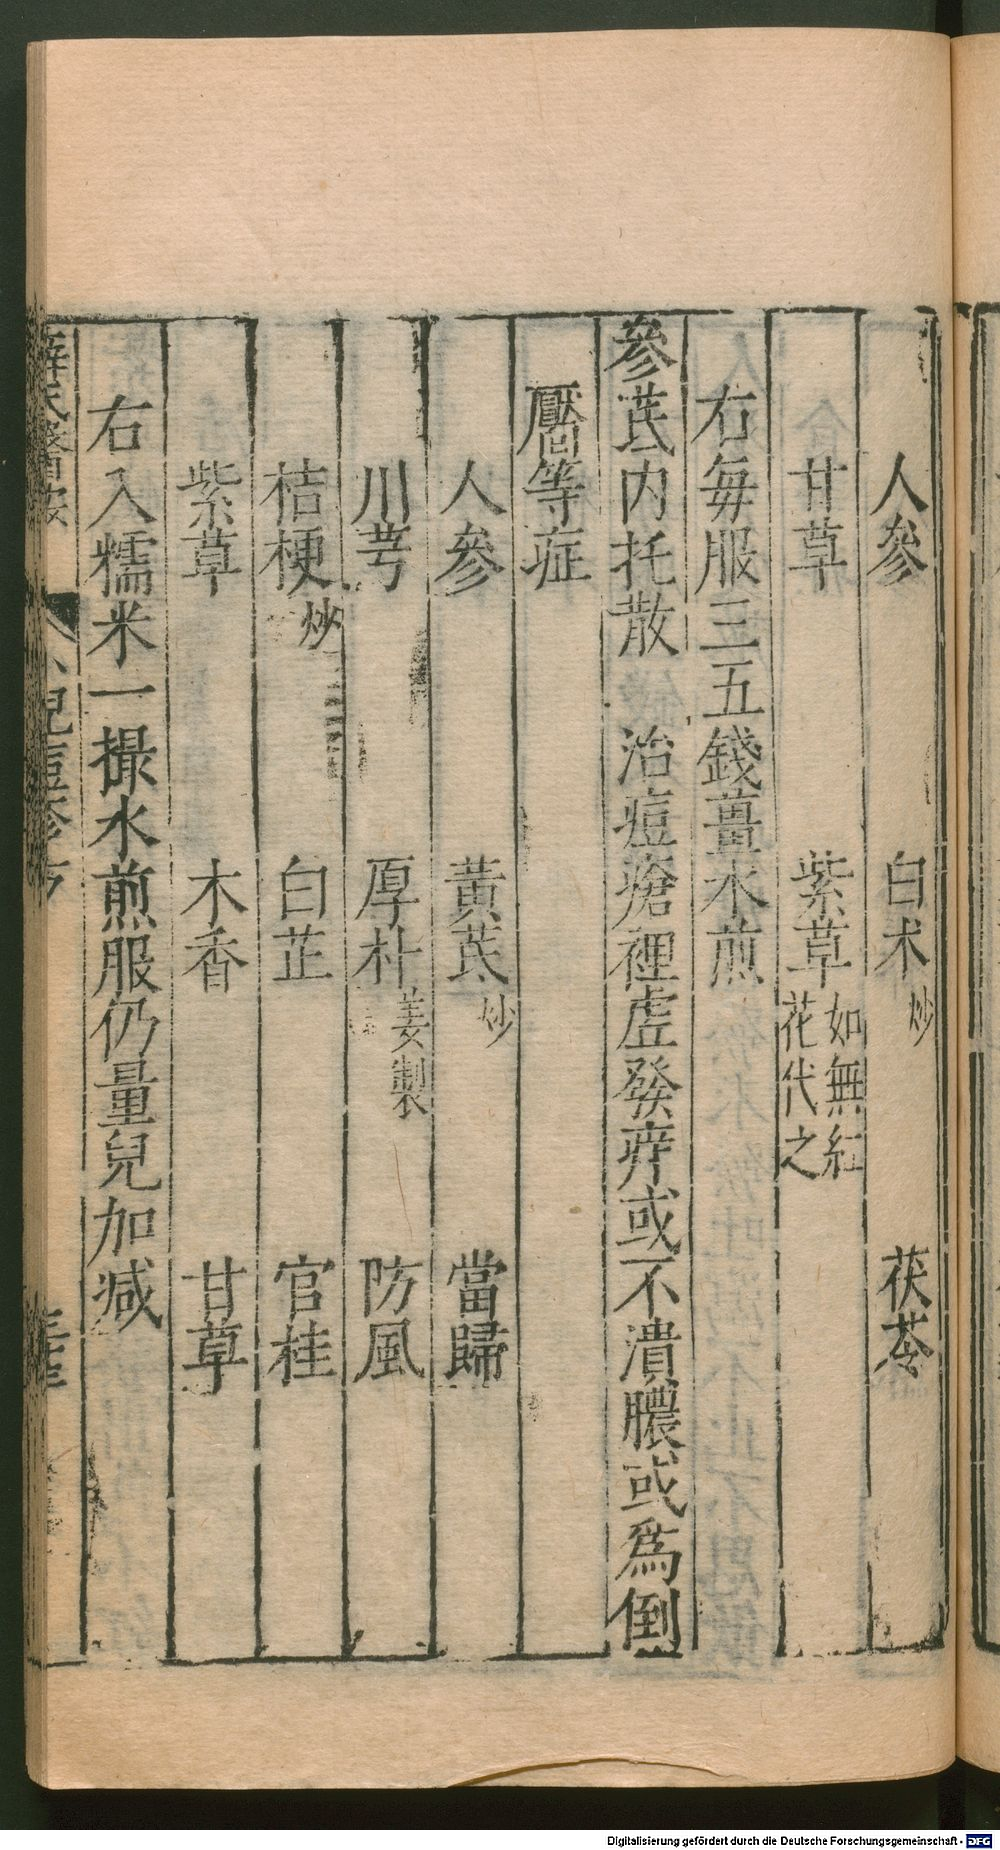 人參　白朮炒　茯苓
甘草　紫草如無紅花代之
右每服三五錢薑水煎
參芪内托散　治痘瘡裡虛發痒或不潰膿或爲倒
靨等症
人參　黃芪炒　當歸
川芎　厚朴姜製　防風
桔梗炒　白芷　官桂
紫草　木香　甘草
右入糯米一撮水煎服仍量兒加減
Digitalisierung gefördert durch die Deutsche Forschungsgemeinschaft - DFG